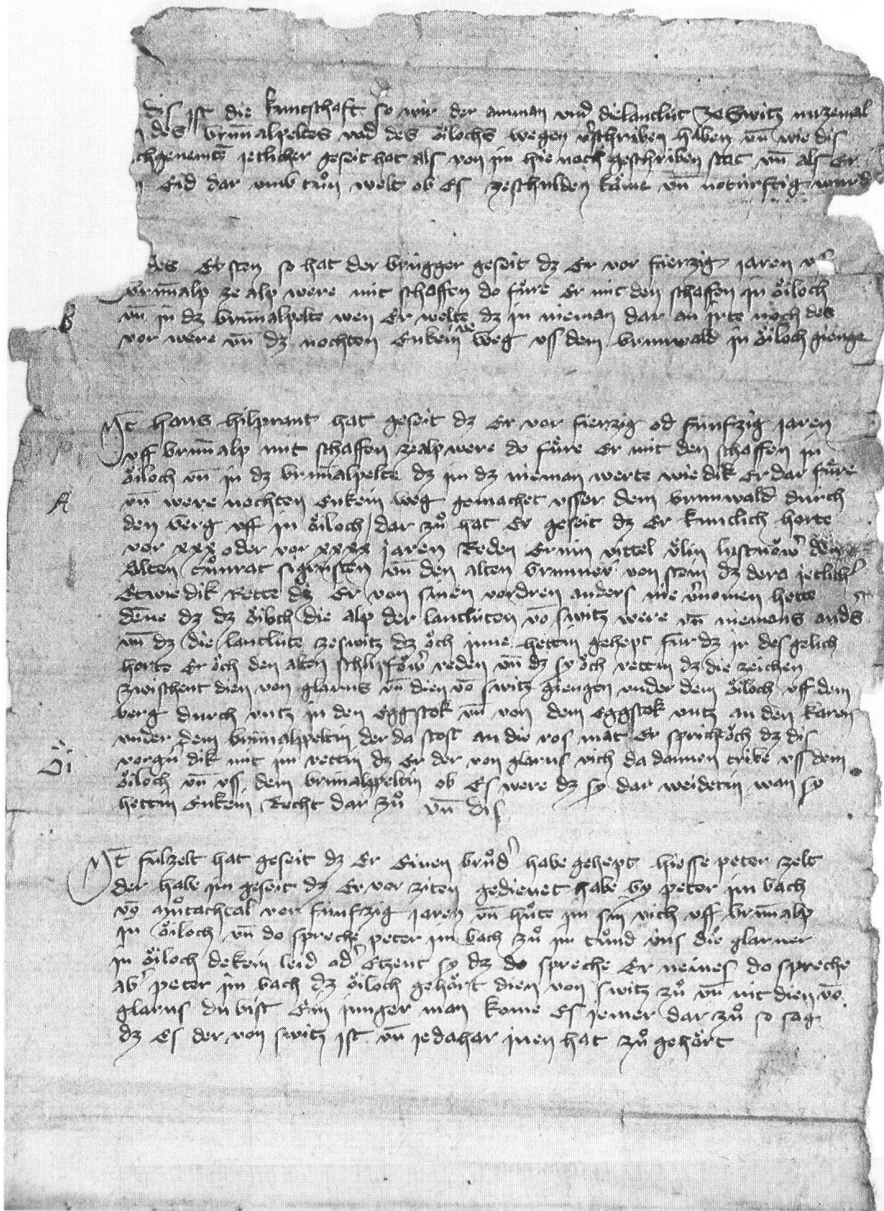 dis ist die kuntschaft so wir der amman vnd die lantlüt ze Switz nu zemal
des brunalpeltes vnd des öilochs wegen v'schriben haben vn̄ wie dis
chgenemte jetlicher geseit hat als von im hie nach geschriben stat vn̄ als Er
Eid dar vmb tůn welt ob Es ze schulden käme vn̄ notürftig wurd
des Ersten so hat der brügger geseit dz Er vor fierzig jaren vf
brunalp ze alp were mit schaffen do füre Er mit den schaffen in öiloch
B
vn̄ in dz brunalpelte wen Er welte dz in nieman dar an jrte noch des
vor were vn̄ dz nochten Enkein weg vf dem brunwald in öiloch gienge
Jt̄ hans hilprant hat geseit dz Er vor fierzig od fünfzig jaren
vff brunalp mit schaffen ze alp were do füre Er mit den schaffen in
öiloch vn̄ in dz brunalpelte dz im dz nieman werte wie dik Er dar füre
A
vn̄ were nochten Enkein weg gemachet vsser dem brunwald durch
den berg vff in öiloch dar zů hat Er geseit dz Er kuntlich horte
vor xxx oder vor xxxx jaren Reden Ernin vittel ölin lustnöw' den
Alten Cůnrat sigristen vn̄ den alten brunner von stein dz dera jetlich'
Etwie dik Rette dz Er von sinen vordren anders nie v'nomen hette
dēne dz dz öiloch die alp der lantlüten vō switz were vn̄ niemans ands
vn̄ dz die lantlüte ze switz dz öch jnne hettin gehept für dz jr des gelich
horte Er öch den alten schlipföw' reden vn̄ dz sy öch rettin dz die zeichen
zwischent dien von glarus vn̄ dien vō switz giengen vnder dem öiloch vff dem
berg durch vntz in den Eggstok vn̄ von dem Eggstok vntz an den karen
vnder dem brunalpeltin der da stost an die ros mat Er sprich öch dz dis
Öi
vorgn̄ dik mit im rettin dz Er der von glarus vich da dannen tribe vss dem
öiloch vn̄ vss dem brunalpeltin ob Es were dz sy dar weidetin wan sy
hettin Enkein Recht dar zů vn̄ dis
Jt̄ fülzelt hat geseit dz Er Einen brůd' habe gehept hiesse peter zelt
der habe im geseit dz Er vor ziten gedienet habe by peter im bach
vō můtachtal vor fünfzig jaren vn̄ hůte im sin vich vff brunalp
in öiloch vn̄ do spreche peter im bach zů im tůnd üns die glarner
in öiloch dekein leid od' Etzent sy dz do spreche Er neines do spreche
ab' peter im bach dz öiloch gehört dien von switz zů vn̄ nit dien vō
glarus du bist Ein junger man kome Es jemer dar zů so sag
dz Es der von switz ist vn̄ je dahar jnen hat zů gehört